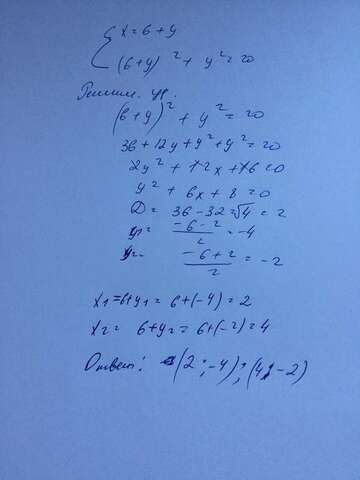 { x = 6 + y
(6+y)² + y² = 20
Решим. ур.
(6+y)² + y² = 20
36 + 12y + y² + y² = 20
2y² + 12x + 16 = 0
y² + 6x + 8 = 0
D = 36 - 32 = √4 = 2
y₁ = (-6-2)/2 = -4
y₂ = (-6+2)/2 = -2
x₁ = 6+y₁ = 6+(-4) = 2
x₂ = 6+y₂ = 6+(-2) = 4
Ответ: (2;-4);(4;-2)